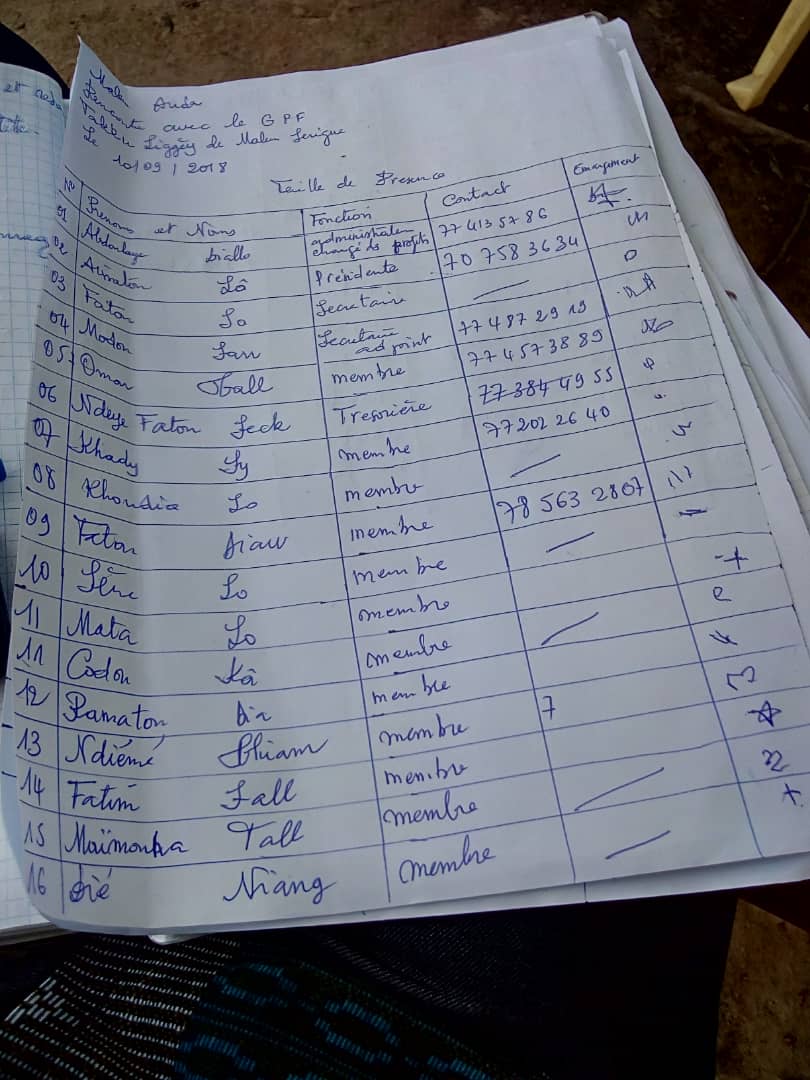 et
Malem Auda
Rencontre avec le GPF
Takku Liggéy de Malem Serigne
Le 10/09/2018
Feuille de Presence
N° Prenoms et Noms Fonction Contact Emargement
01 Abdoulaye Diallo administrateur chargé de profils 77 413 57 86
02 Aminaton Lô Présidente 70 758 36 34
03 Faton Lo Secretaire
04 Modon Sarr Secretaire adjoint 77 487 29 19
05 Omar Mball membre 77 457 38 89
06 Ndeye Faton Seck Tresorière 77 384 49 55
07 Khady Sy membre 77 202 26 40
08 Khoudia Lo membre
09 Faton Diaw membre 78 563 28 07
10 Sène Lo membre
11 Mata Lo membre
11 Codou Kâ membre
12 Ramaton Dia membre
13 Ndiémé Thiam membre 7
14 Fatim Fall membre
15 Maïmouna Tall membre
16 Dié Niang membre